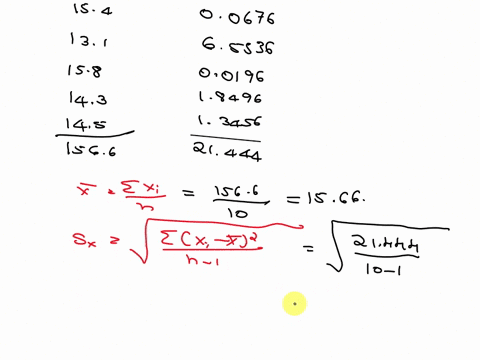 15.4 0.0676
13.1 6.5536
15.8 0.0196
14.3 1.8496
14.5 1.3456
156.6 21.444
x̄ = Σxi/n = 156.6/10 = 15.66.
Sx = √(Σ(xi-x̄)²/n-1) = √(21.444/10-1)